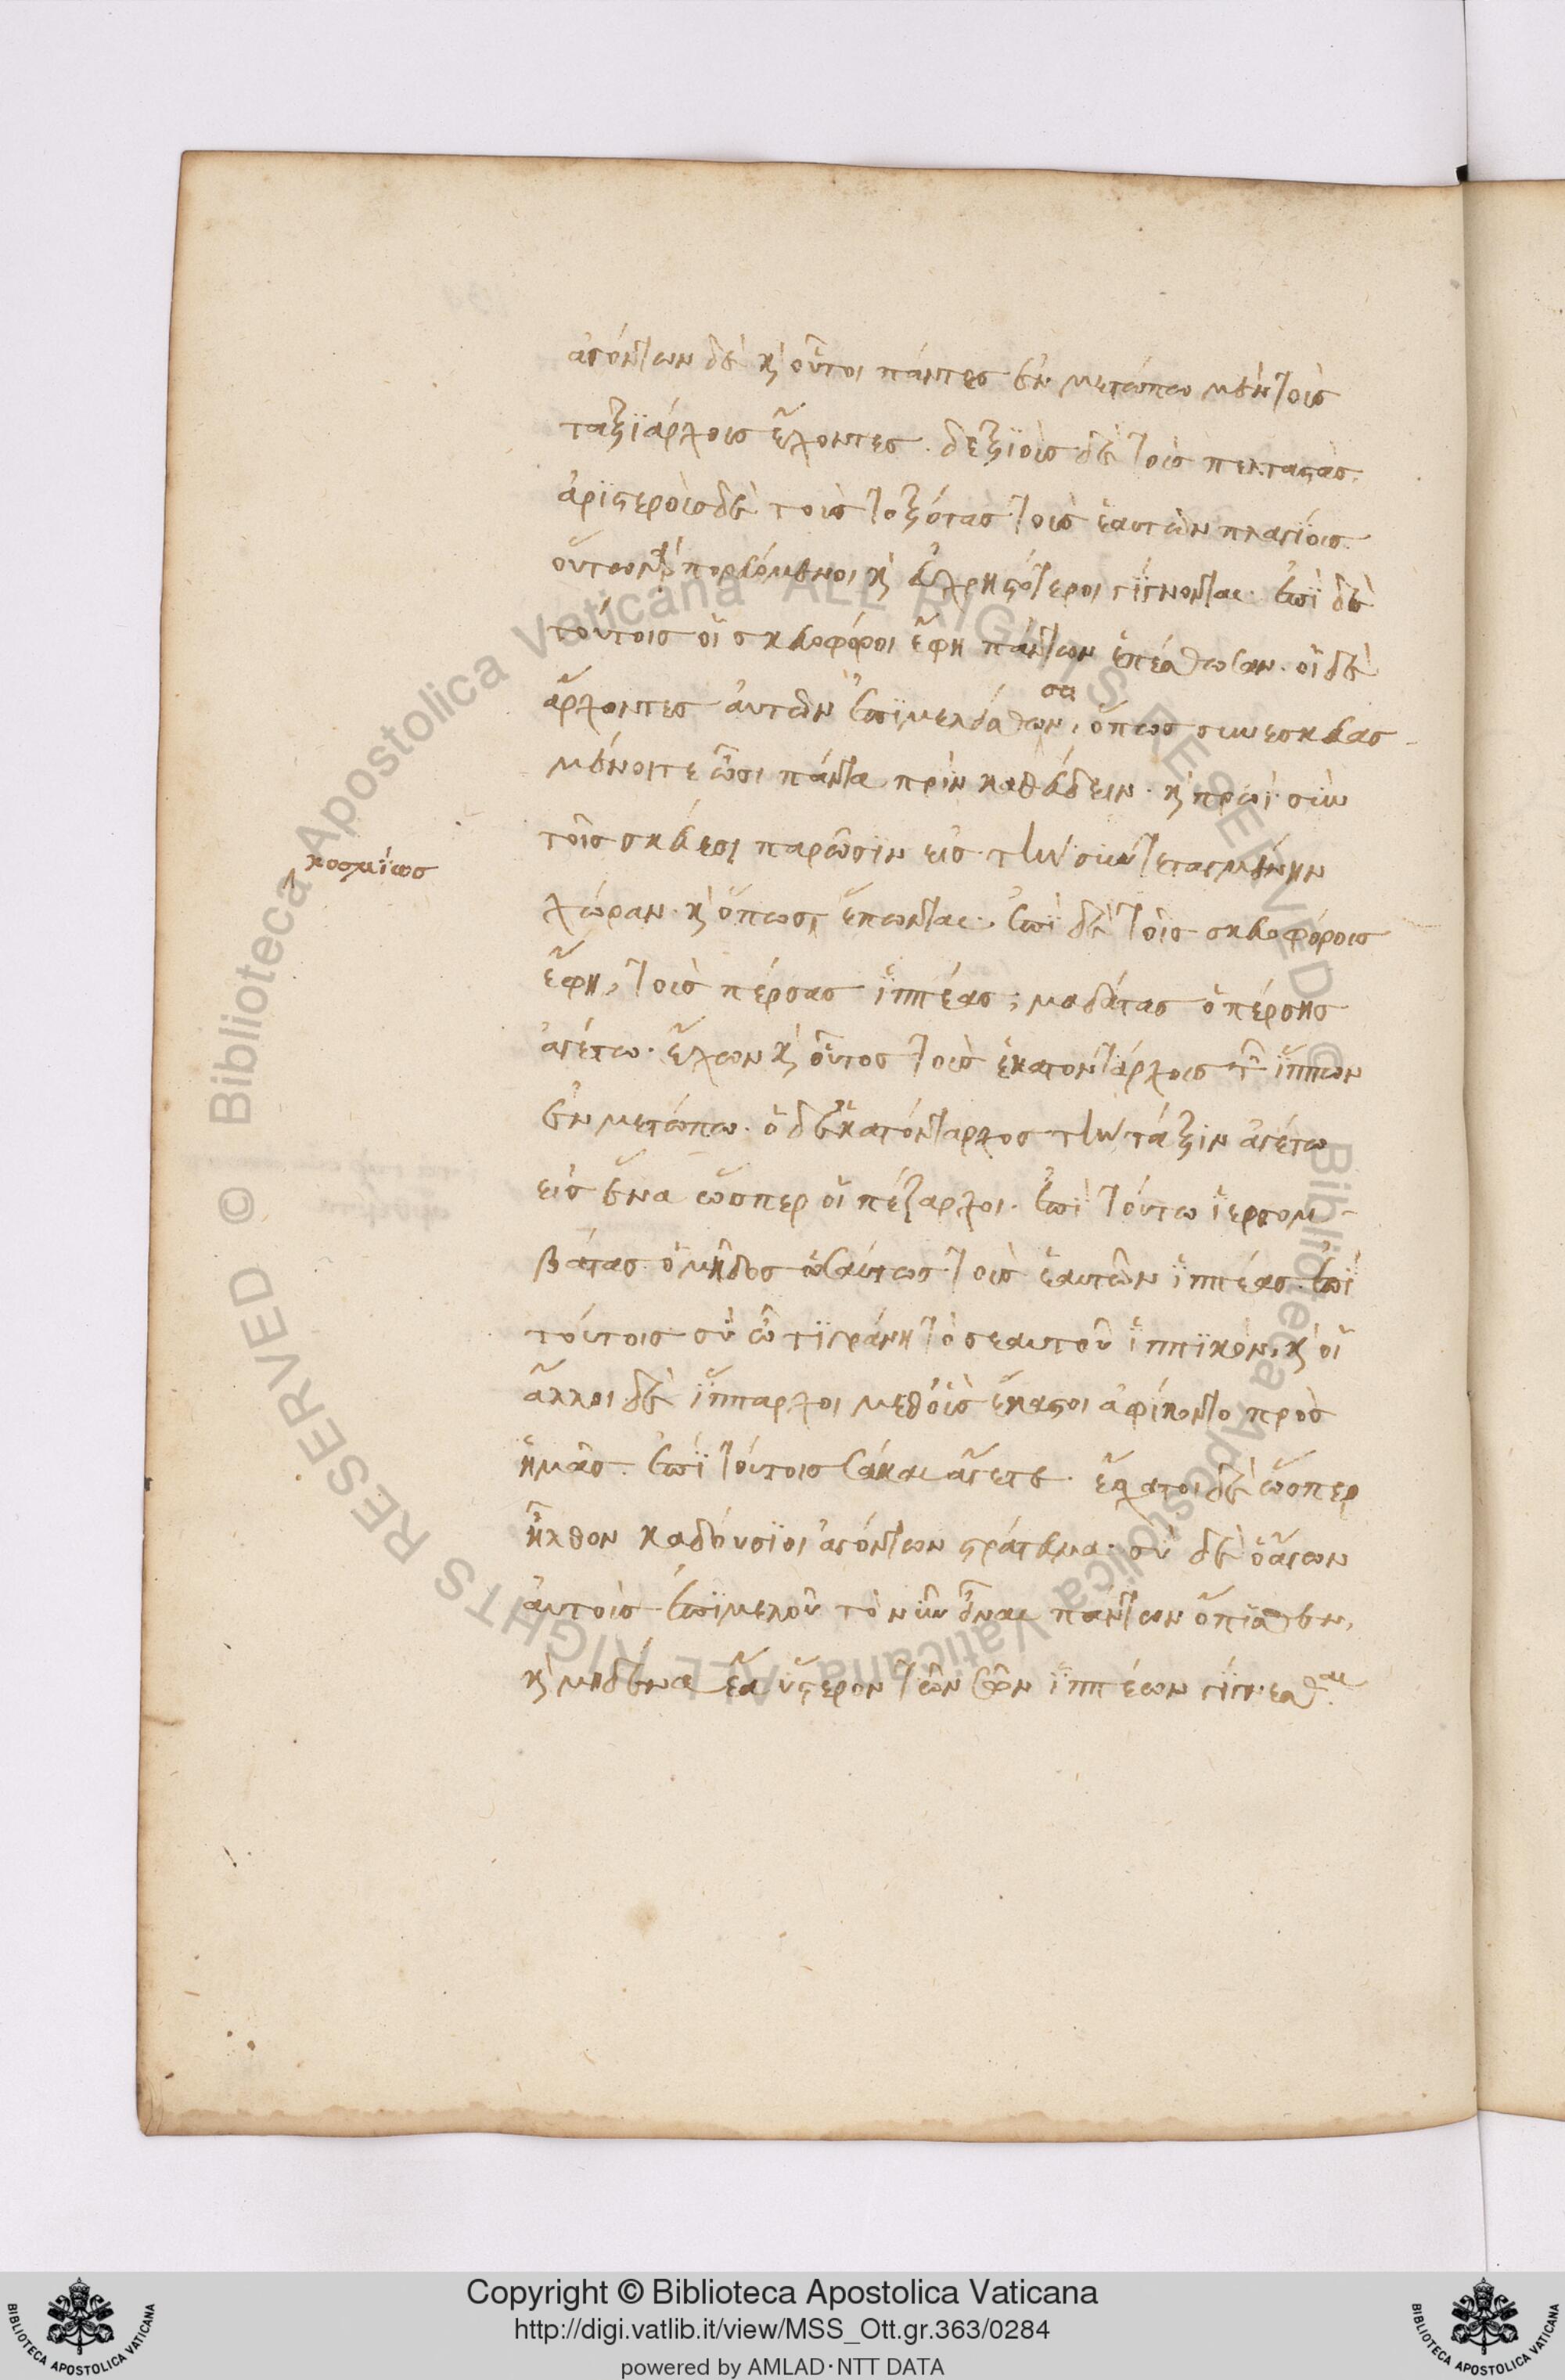 ἀγόντων δὲ καὶ οὗτοι πάντες ἐν μετώπω μὲν τοὺς
ταξϊάρχους ἔχοντες. δεξϊοὺς δὲ τοὺς πελταστὰς.
ἀρϊστεροὺς δὲ τοὺς τοξότας τοὺς ἑαυτῶν πλαγίους.
οὕτω γὰρ πορευόμενοι καὶ εὐχρηστότεροι γίγνονται. ἐπὶ δὲ
τούτοις οἱ σκευοφόροι ἔφη πάντων ἑπέσθωσαν. οἱ δὲ
ἄρχοντες αὐτῶν ἐπιμελείσθωσαν, ὅπως συνεσκευασ-
μένοι τε ὦσι πάντα πρὶν καθεύδειν. καὶ πρωὶ σὺν
τοῖς σκεύεσι παρῶσιν εἰς τὴν συντεταγμένην
κοσμίως
χώραν. καὶ ὅπως ἕπωνται. ἐπὶ δὲ τοῖς σκευοφόροις
ἔφη, τοὺς πέρσας ἱππέας, μαδάτας ὁ πέρσης
ἀγέτω. ἔχων καὶ οὗτος τοὺς ἑκατοντάρχους τῶν ἵππων
ἐν μετώπω. ὁ δ' ἑκατόνταρχος τὴν τάξιν ἀγέτω
εἰς ἕνα ὥσπερ οἱ πέζαρχοι. ἐπὶ τούτω ἱερσομ-
βάτας ὁ μῆδος ὡσαύτως τοὺς ἑαυτῶν ἱππέας. ἐπὶ
τούτοις σὺ ὦ τιγράνη τὸ σεαυτοῦ ἱππϊκὸν, καὶ οἱ
ἄλλοι δὲ ἵππαρχοι μεθ' οἷς ἕκαστοι ἀφίκοντο πρὸς
ἡμᾶς. ἐπὶ τούτοις σάκαι ἄγετε. ἔσχατοι δὲ ὥσπερ
ἦλθον καδούσϊοι ἀγόντων στράτευμα. σὺ δὲ ὁ ἄγων
αὐτοὺς ἐπιμελοῦ τὸ νῦν εἶναι πάντων ὄπισθεν,
καὶ μηδένα ἔα ὕστερον τῶν σῶν ἱππέων γίγνεσθαι.
Copyright © Biblioteca Apostolica Vaticana
http://digi.vatlib.it/view/MSS_Ott.gr.363/0284
powered by AMLAD·NTT DATA